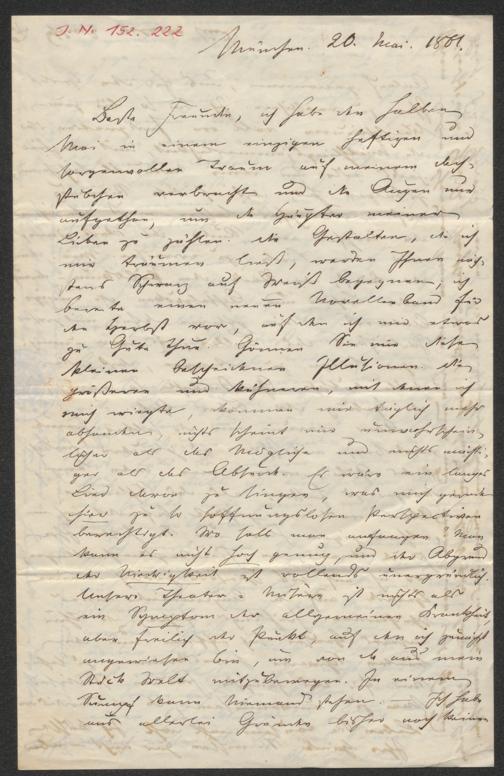 J. N. 152.222
München. 20. Mai. 1861.
Beste Freundin, ich habe den halben
Mai in einem einzigen heftigen und
sorgenvollen Traum auf meinem Dach-
stübchen verbracht und die Augen nur
aufgethan um die Häupter meiner
Lieben zu zählen. Die Gestalten, die ich
mir träumen ließ, werden Ihnen näch-
stens Schwarz auf Weiß begegnen, ich
bereite einen neuen Novellenband für
den Herbst vor, auf den ich mir etwas
zu Gute thue. Gönnen Sie mir diese
kleinen bescheidenen Illusionen. Die
größeren und kühneren, mit denen ich
mich wiegte, kommen mir täglich mehr
abhanden, nichts scheint mir unwahrschein-
licher als das Mögliche und nichts
als das Absurde. Es wäre ein langes
Lied davon zu singen, was mich gerade
hier zu so hoffnungslosen Perspectiven
berechtigt. Wo soll man anfangen? Man
kann es nicht hoch genug, und der Abgrund
der Niedrigkeit ist vollends unergründlich.
Unsere Theater-Misere ist nichts als
ein Symptom der allgemeinen Krankheit
aber freilich der Punkt, auf den ich zunächst
angewiesen bin, um von da aus mein
Stück Welt mitzubewegen. In einem
Sumpf kann Niemand stehen. — Ich habe
aus allerlei Gründen bisher noch keinen